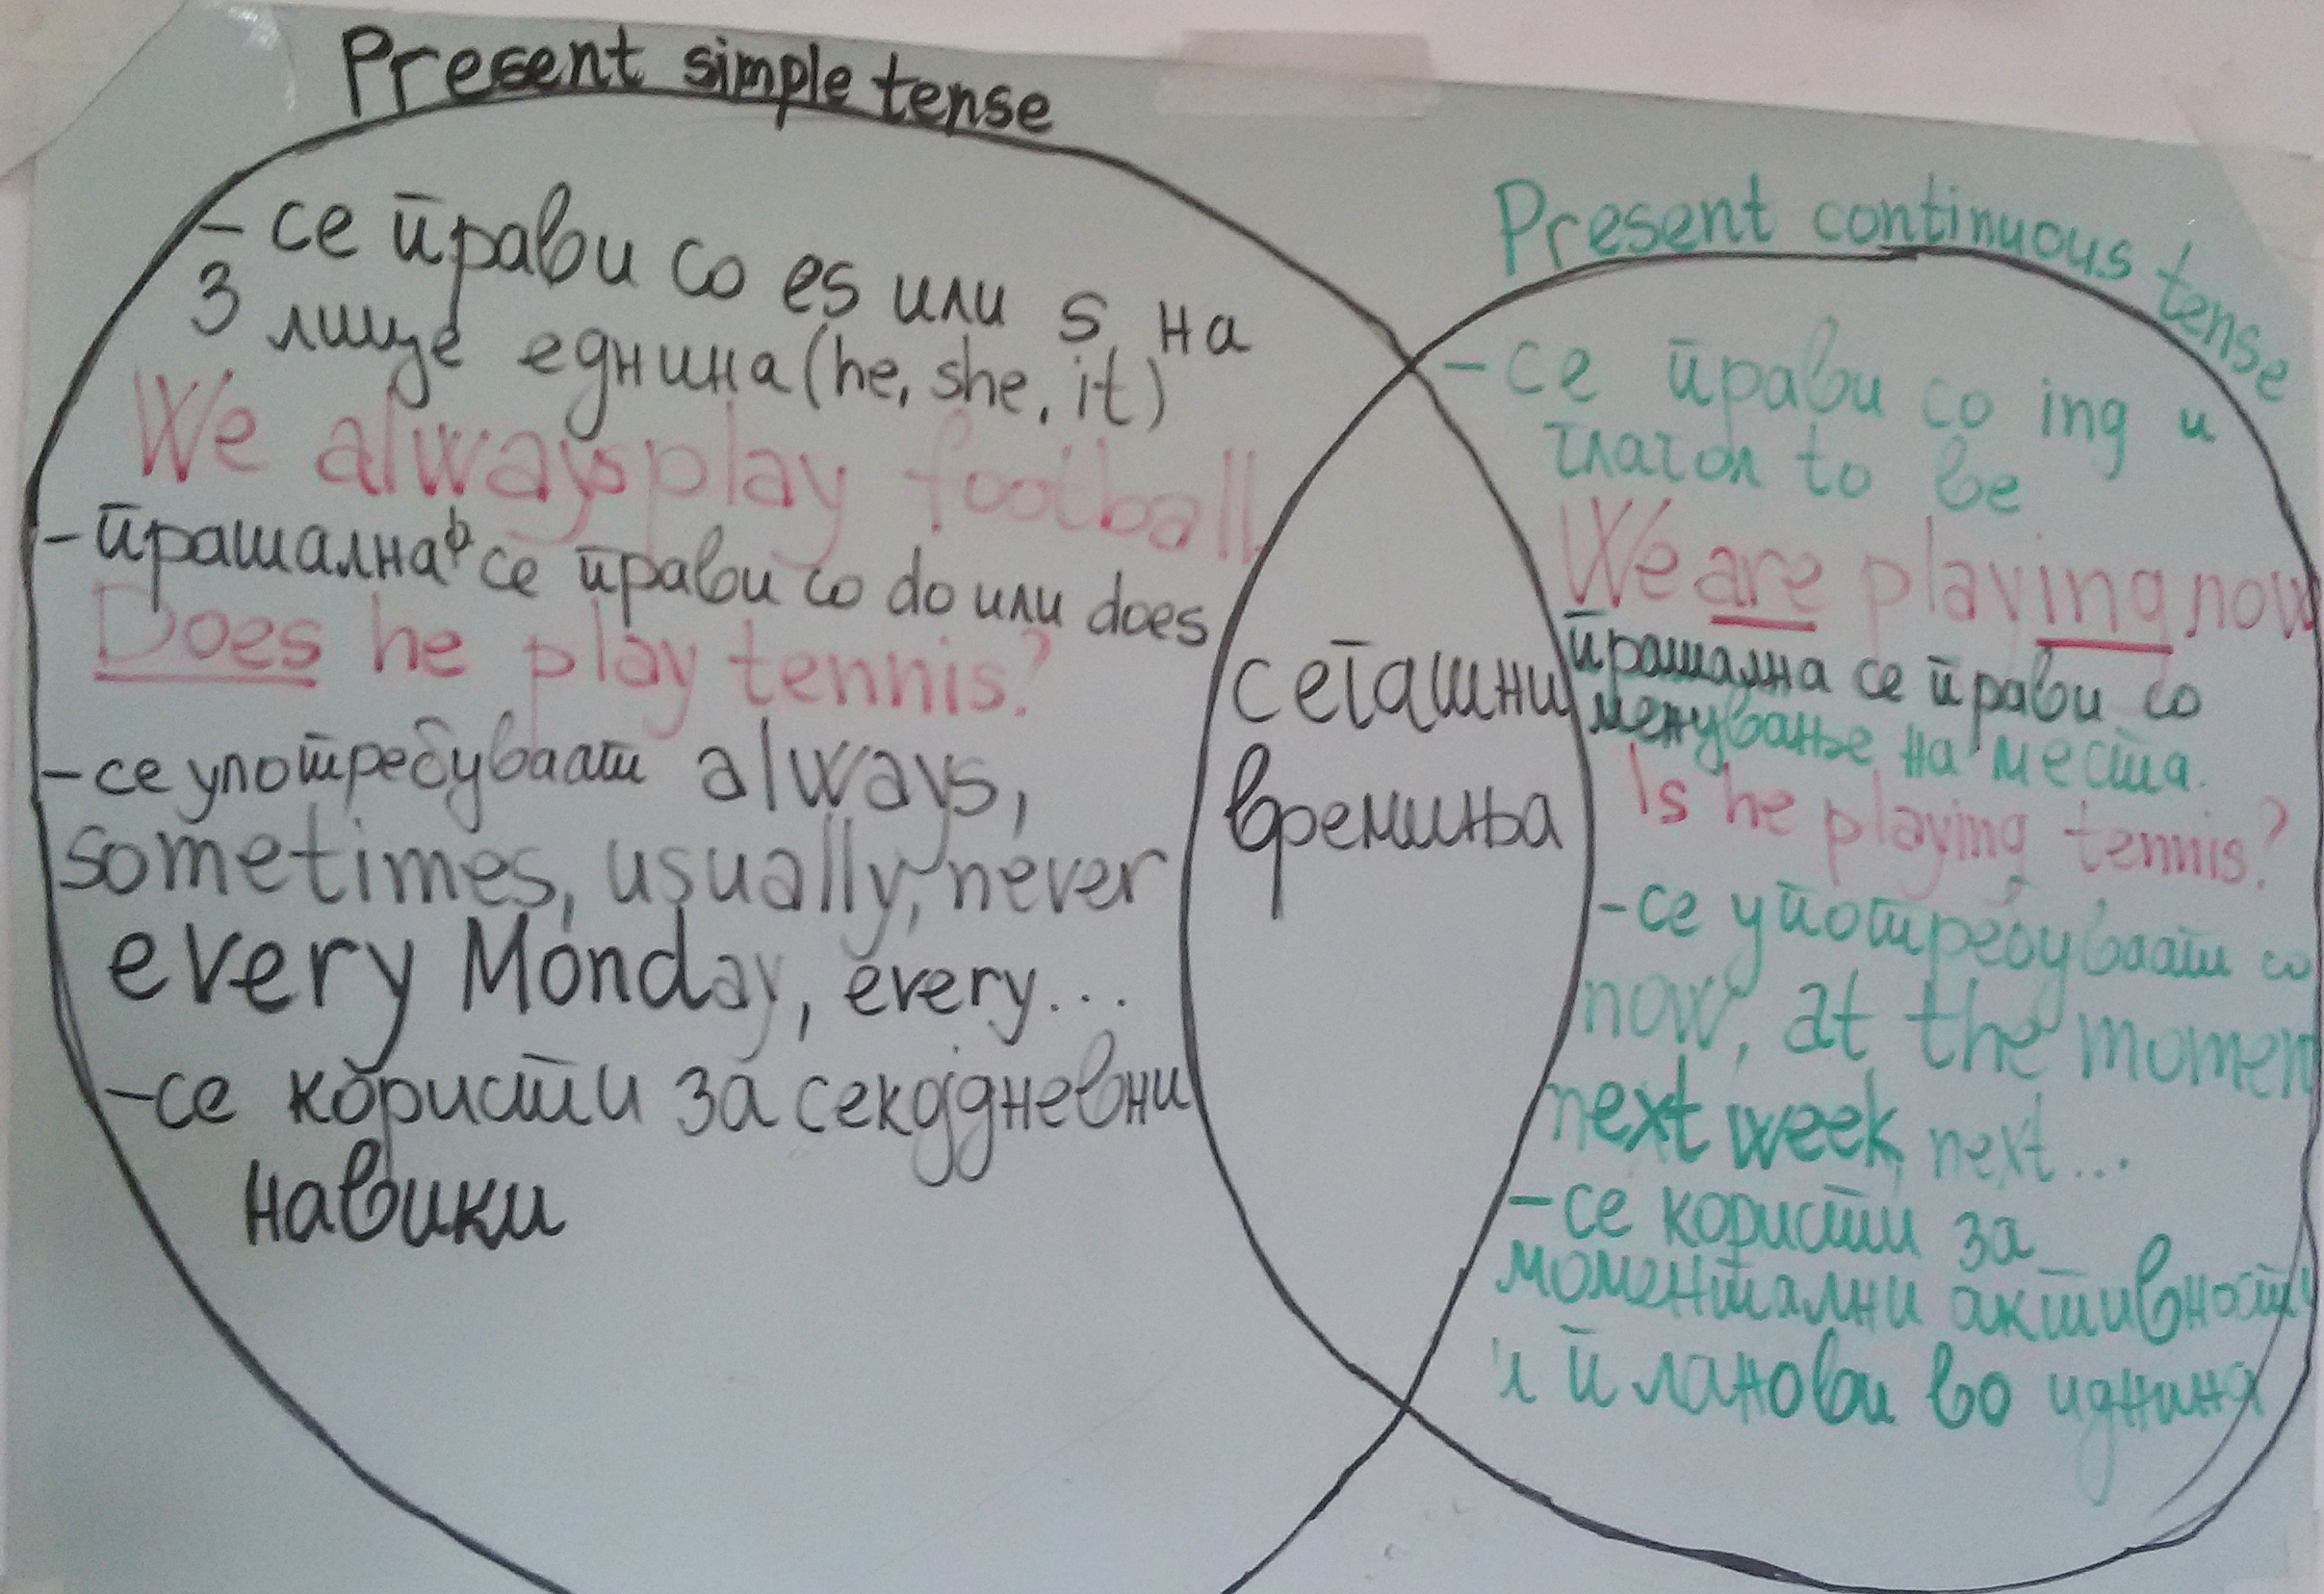 Present simple tense
- се прави со es или s на
3 лице еднина (he, she, it)
We always play football.
- прашална ф се прави со do или does
Does he play tennis?
- се употребуваат always,
sometimes, usually, never
every Monday, every...
- се користи за секојдневни
навики
сегашни
времиња
Present continuous tense
- се прави со ing и
глагол to be
We are playing now
прашална се прави со
менување на места.
Is he playing tennis?
- се употребуваат со
now, at the momen
next week, next...
- се користи за
моментални активности
и планови во иднина